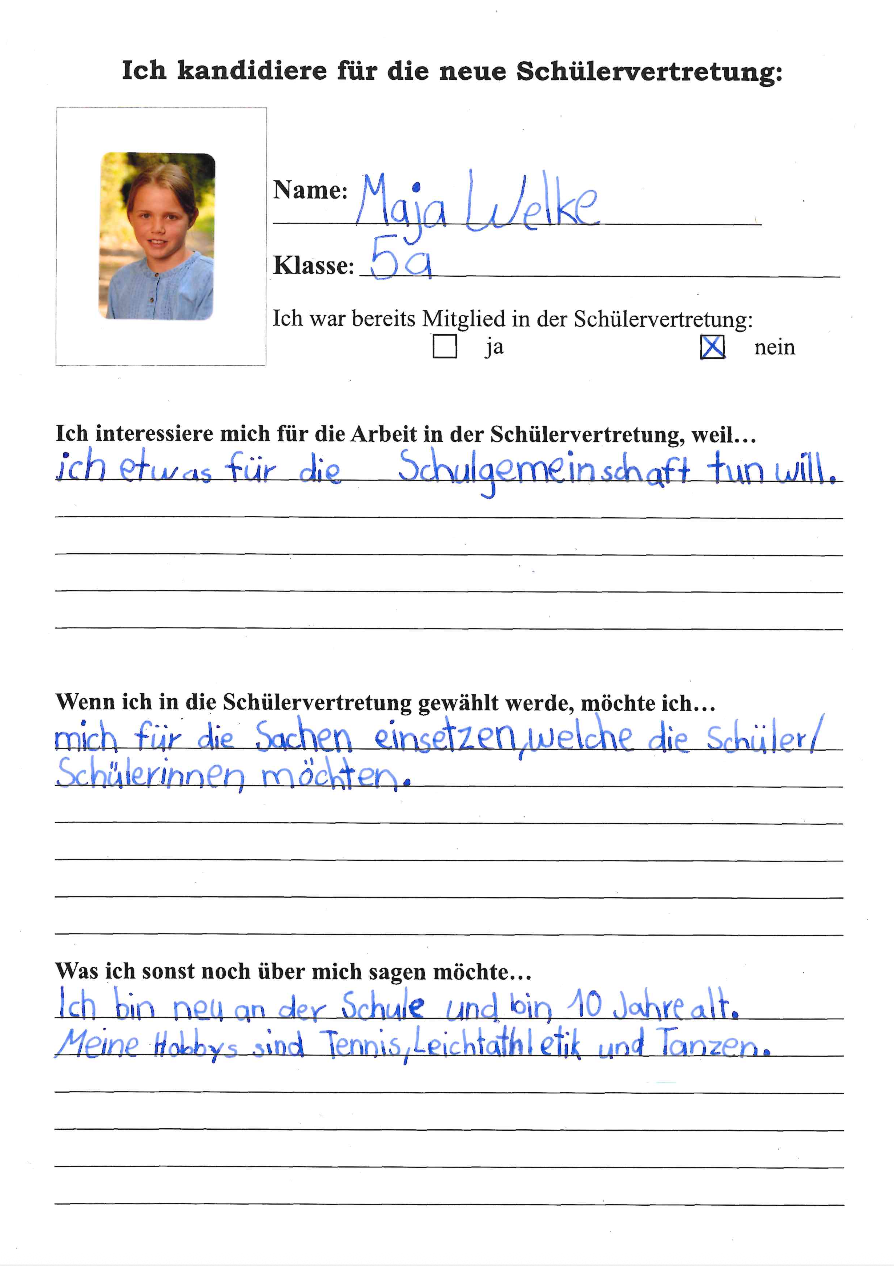 Ich kandidiere für die neue Schülervertretung:
Name: Maja Welke
Klasse: 5a
Ich war bereits Mitglied in der Schülervertretung:
ja nein
Ich interessiere mich für die Arbeit in der Schülervertretung, weil...
ich etwas für die Schulgemeinschaft tun will.
Wenn ich in die Schülervertretung gewählt werde, möchte ich...
mich für die Sachen einsetzen, welche die Schüler/
Schülerinnen möchten.
Was ich sonst noch über mich sagen möchte...
Ich bin neu an der Schule und bin 10 Jahre alt.
Meine Hobbys sind Tennis, Leichtathletik und Tanzen.